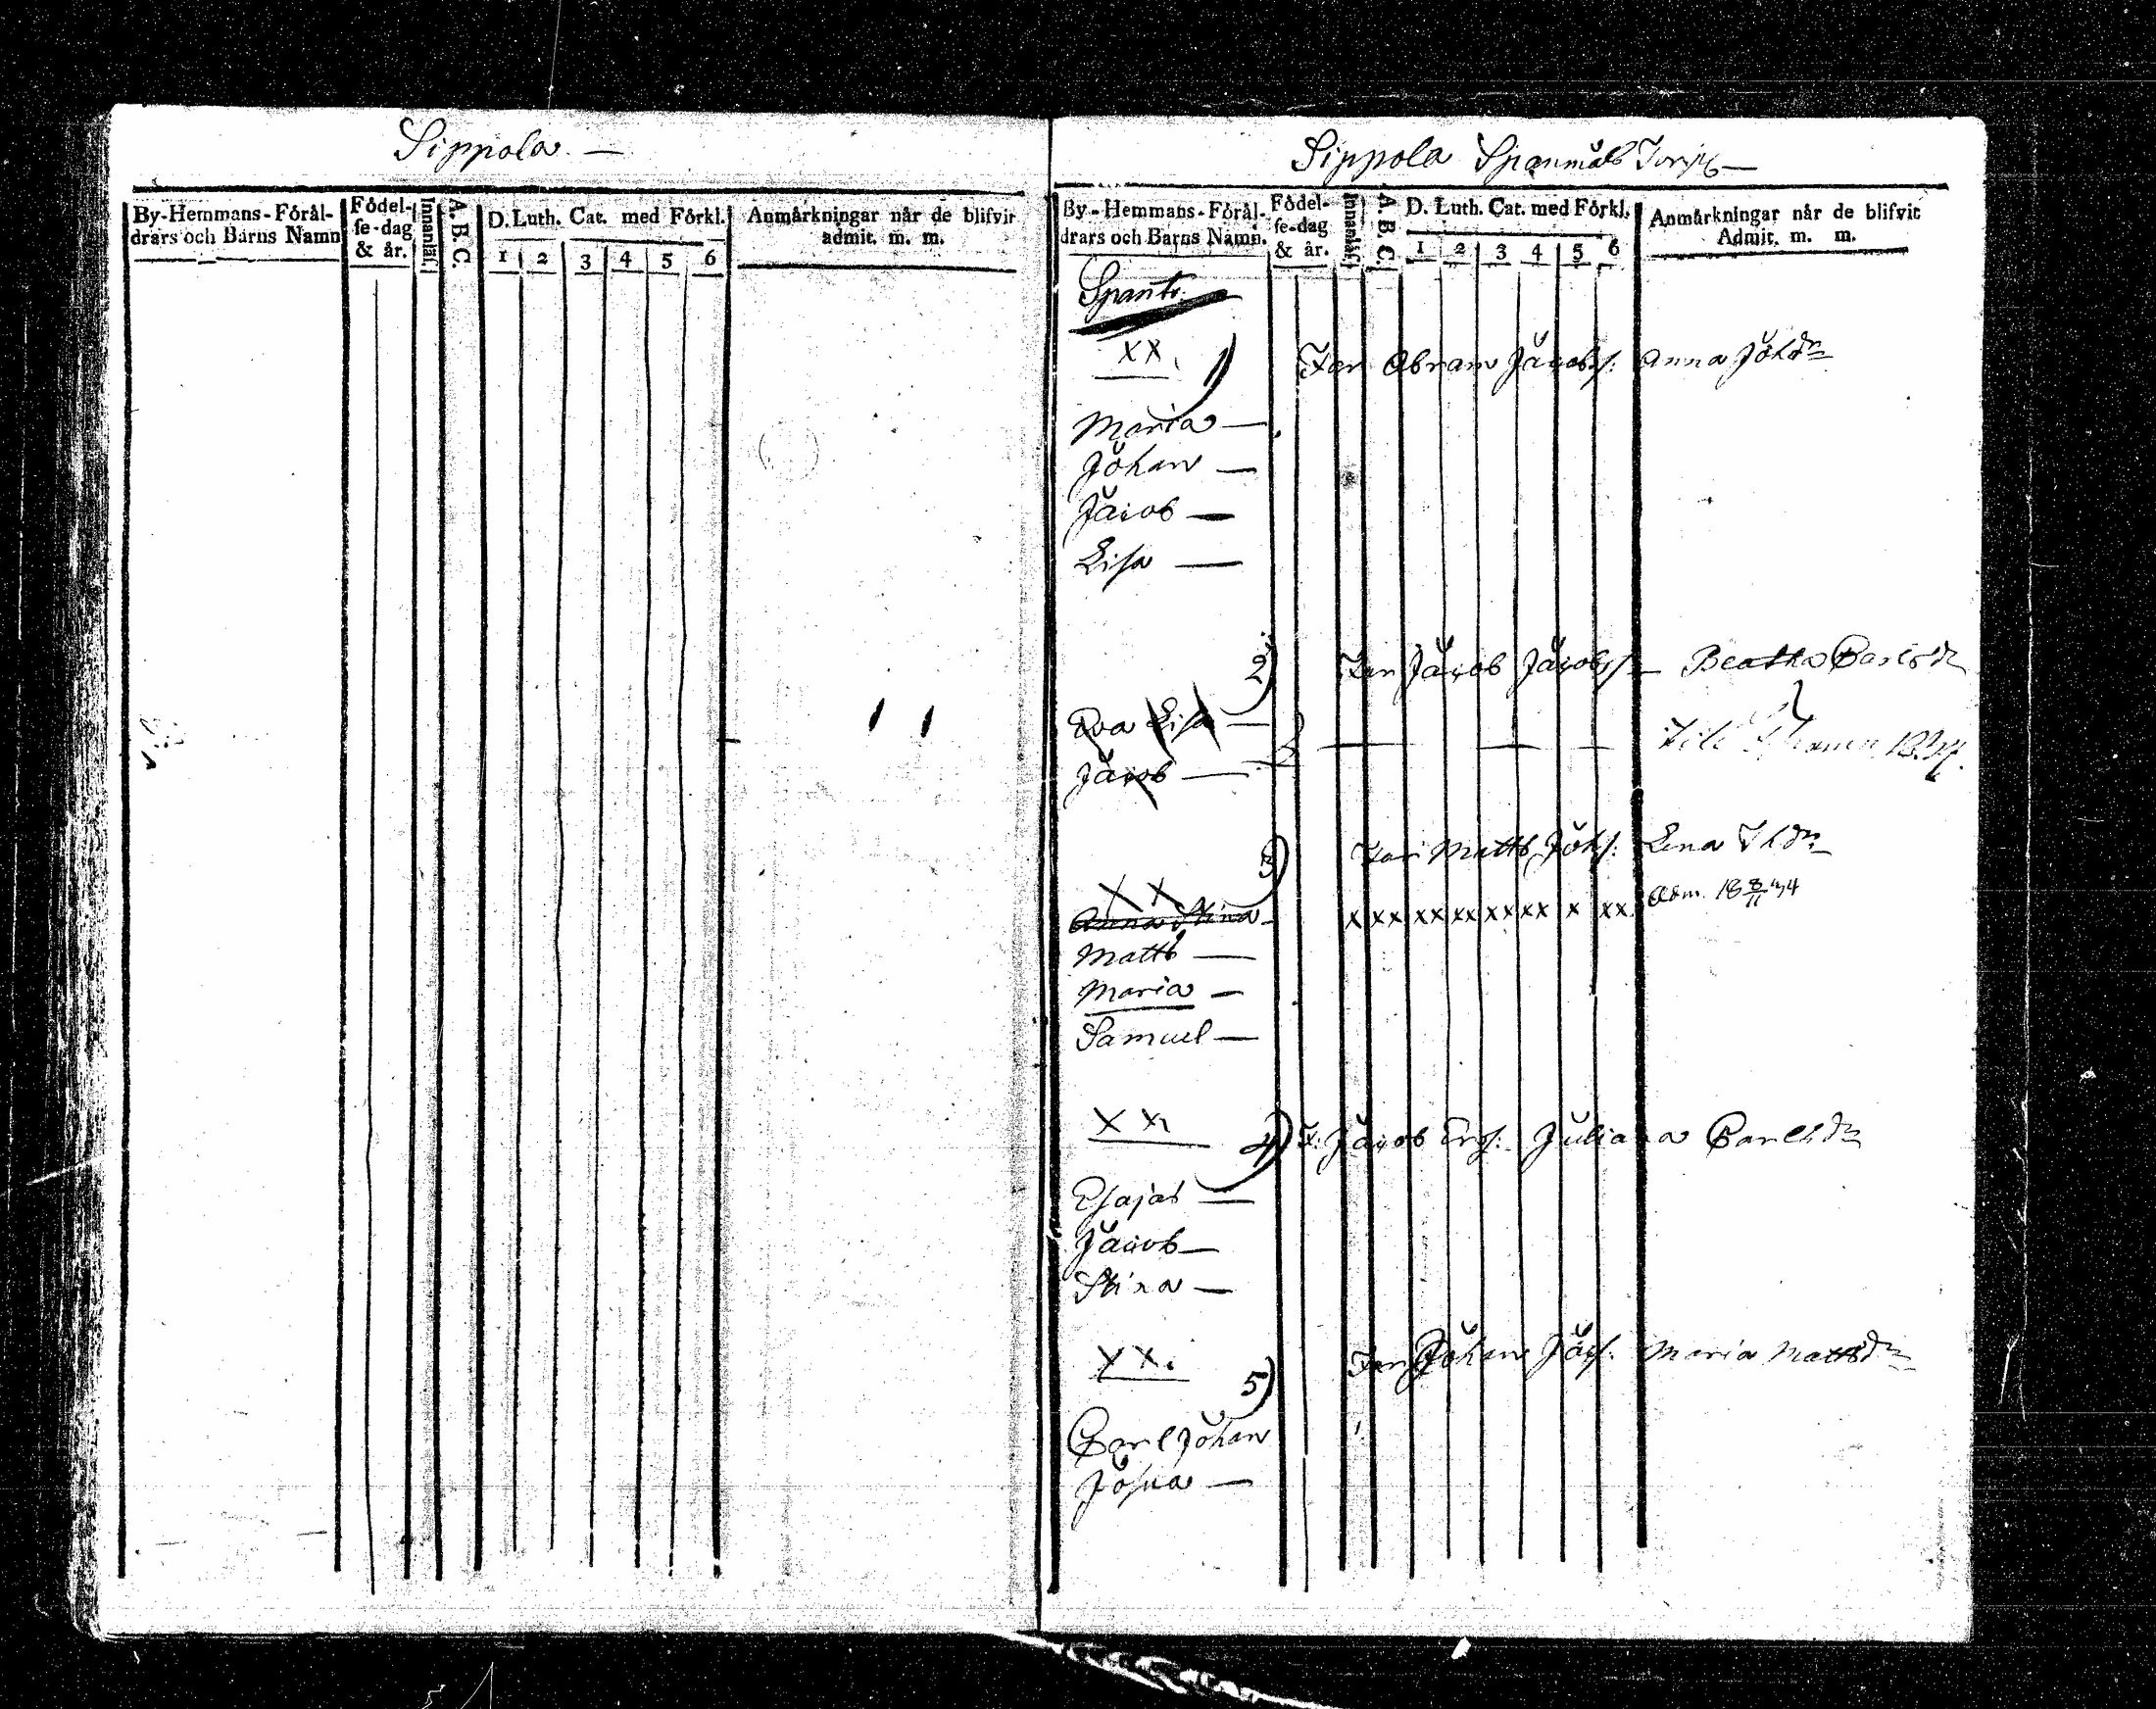 Sippola. —
By-Hemmans-Förål-
drars och Barns Namn
Födel-
se-dag
& år.
Innanläs.
A. B. C.
D. Luth. Cat. med Förkl.
1 2 3 4 5 6
Anmärkningar når de blifvit
admit. m. m.
Sippola Spanmåls
By-Hemmans-Förål-
drars och Barns Namn.
Födel-
se-dag
& år.
Innanläs.
A. B. C.
D. Luth. Cat. med Förkl.
1 2 3 4 5 6
Anmärkningar når de blifvit
Admit. m. m.
XX
1) Abram Jacobs: Anna Johdr
Maria —
Johan —
Jacob —
Lisa —
2) Jacob Jacobs — Beatha
Eva Lisa —
Jacob —
3) Matts Johs: Lena
X X
Anna Stina — x xx xx xx xx xx x xx Adm.
Matts —
Maria —
Samuel —
X X
4) Jacob Ers: Juliana Carlsdr
Esajas —
Jacob —
Stina —
XX
5) Johan Jacs: Maria Mattsdr
Carl Johan
Josua —